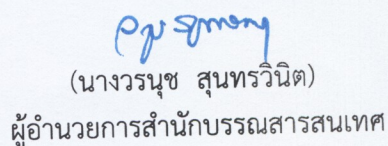 (นางวรนุช สุนทรวินิต)
ผู้อำนวยการสำนักบรรณสารสนเทศ